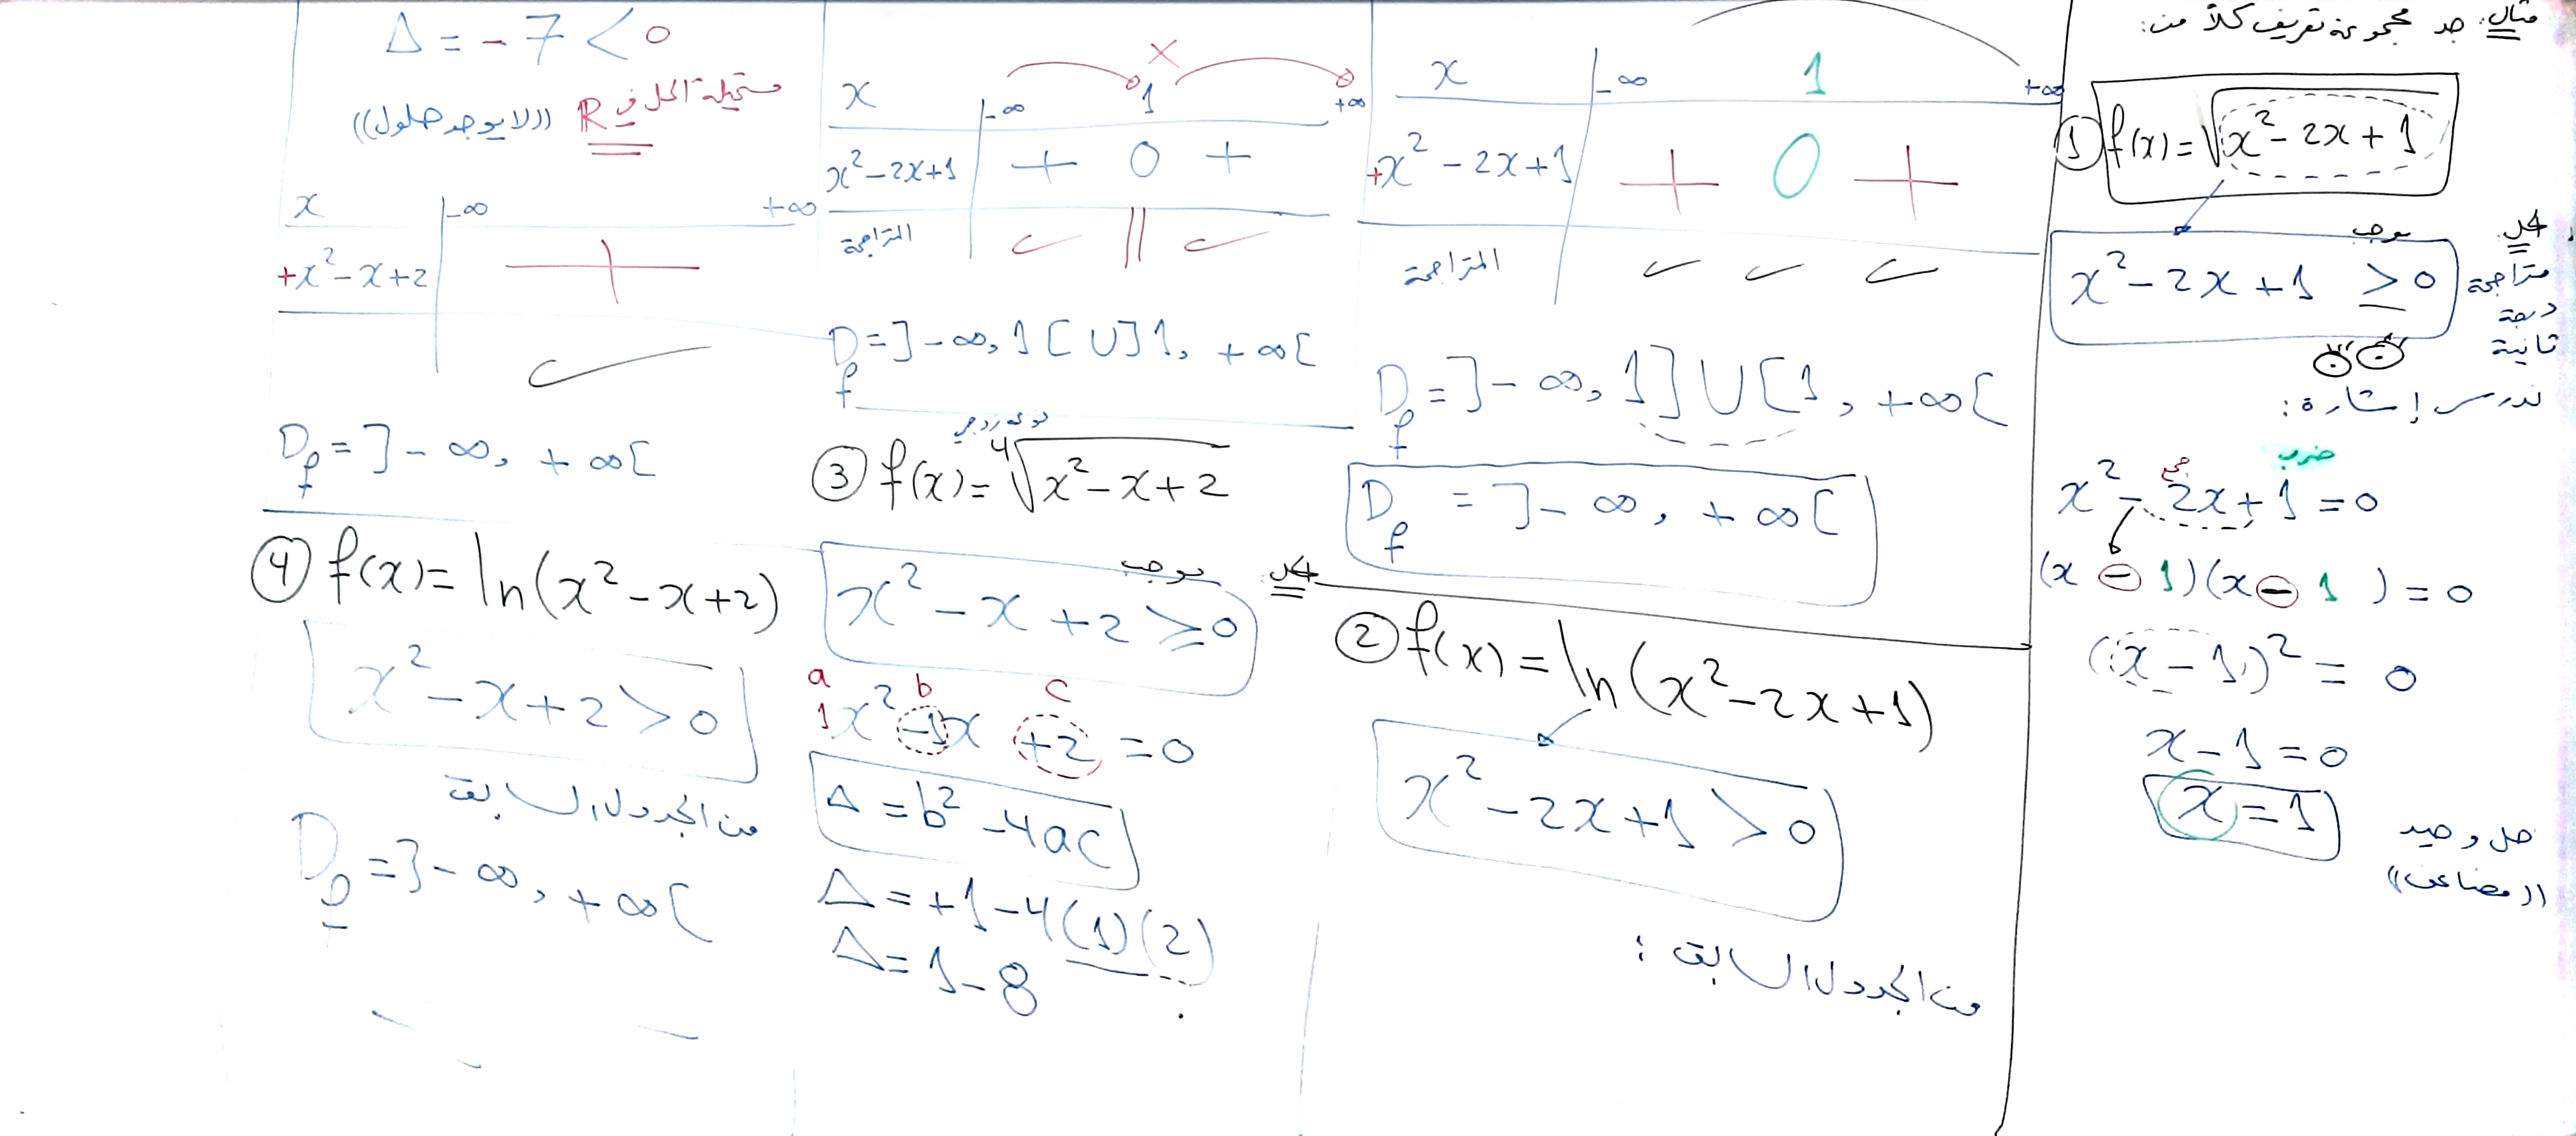 مثال: جد مجموعة تعريف كلاً من:
① f(x) = √(x² - 2x + 1)
الحل
موجب
x² - 2x + 1 ≥ 0
متراجحة
درجة
ثانية
ندرس إشارة:
ضرب
جمع
x² - 2x + 1 = 0
(x - 1)(x - 1) = 0
(x - 1)² = 0
x - 1 = 0
x = 1
حل وحيد
((مضاعف))
x | -∞ 1 +∞
+x² - 2x + 1 | + 0 +
المتراجحة | ✓ ✓ ✓
D_f = ]-∞, 1] ∪ [1, +∞[
D_f = ]-∞, +∞[
② f(x) = ln(x² - 2x + 1)
x² - 2x + 1 > 0
من الجدول السابق:
x | -∞ 1 +∞
x² - 2x + 1 | + 0 +
المتراجحة | ✓ || ✓
D_f = ]-∞, 1[ ∪ ]1, +∞[
③ f(x) = ⁴√(x² - x + 2)
الحل
موجب
x² - x + 2 ≥ 0
a b c
1x² -1x +2 = 0
Δ = b² - 4ac
Δ = +1 - 4(1)(2)
Δ = 1 - 8
Δ = -7 < 0
مستحيلة الحل في R ((لا يوجد حلول))
x | -∞ +∞
+x² - x + 2 | +
✓
D_f = ]-∞, +∞[
④ f(x) = ln(x² - x + 2)
x² - x + 2 > 0
من الجدول السابق
D_f = ]-∞, +∞[